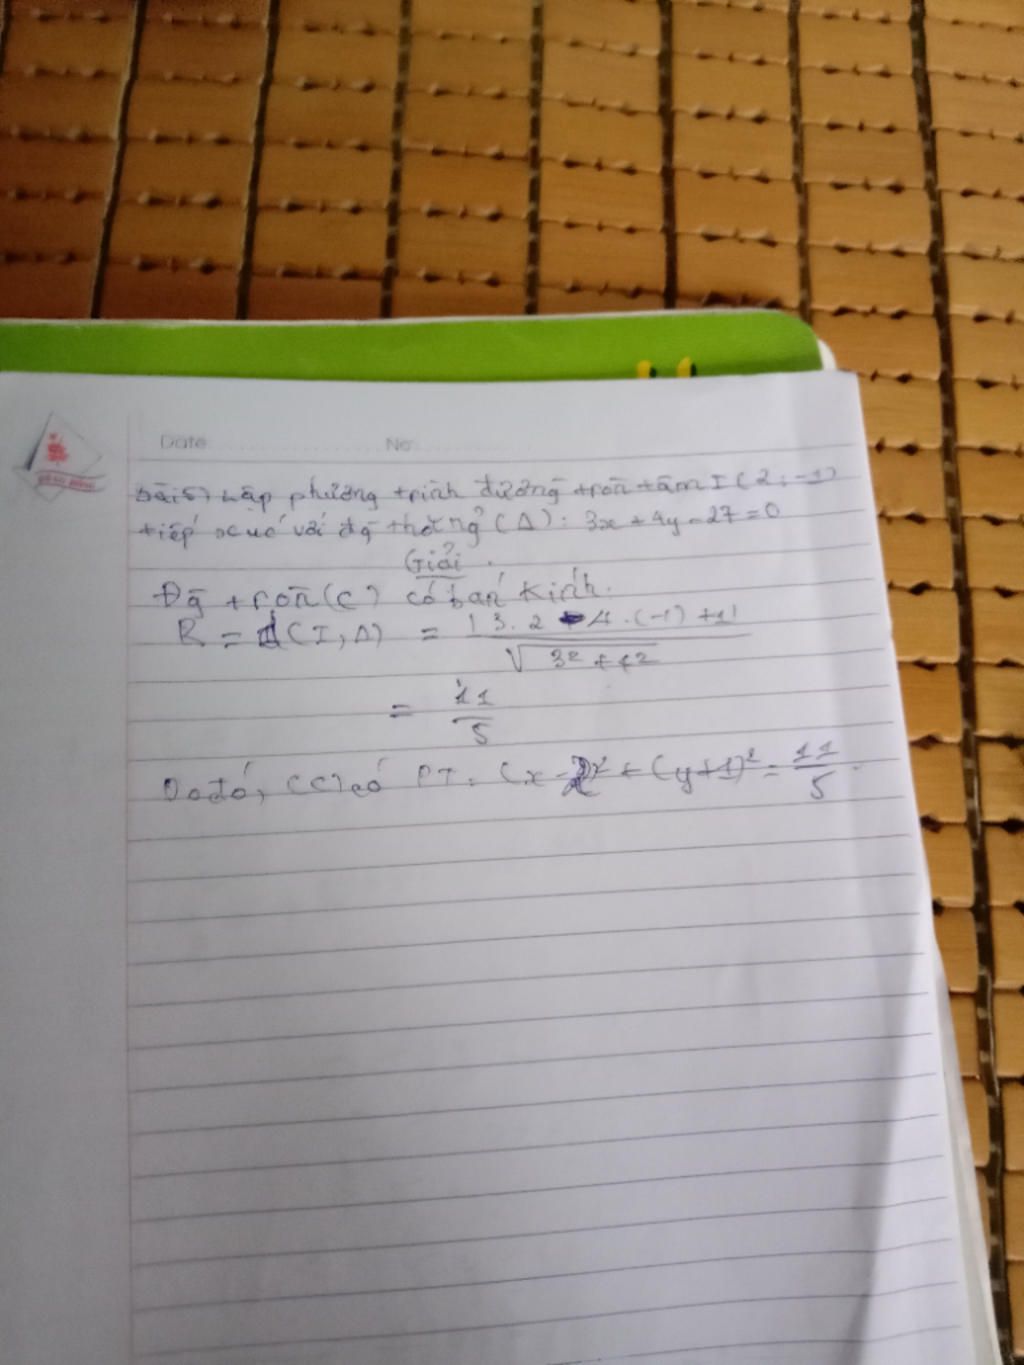 Date No
Bài 5) Lập phương trình đường tròn tâm I (2; -1)
tiếp xúc với đg thẳng (Δ): 3x + 4y - 27 = 0
Giải.
Đg tròn (C) có bán kính.
R = d(I, Δ) = |3.2 - 4.(-1) + 1| / √3² + 4²
= 11/5
Do đó, (C) có PT: (x - 2)² + (y + 1)² = 11/5.